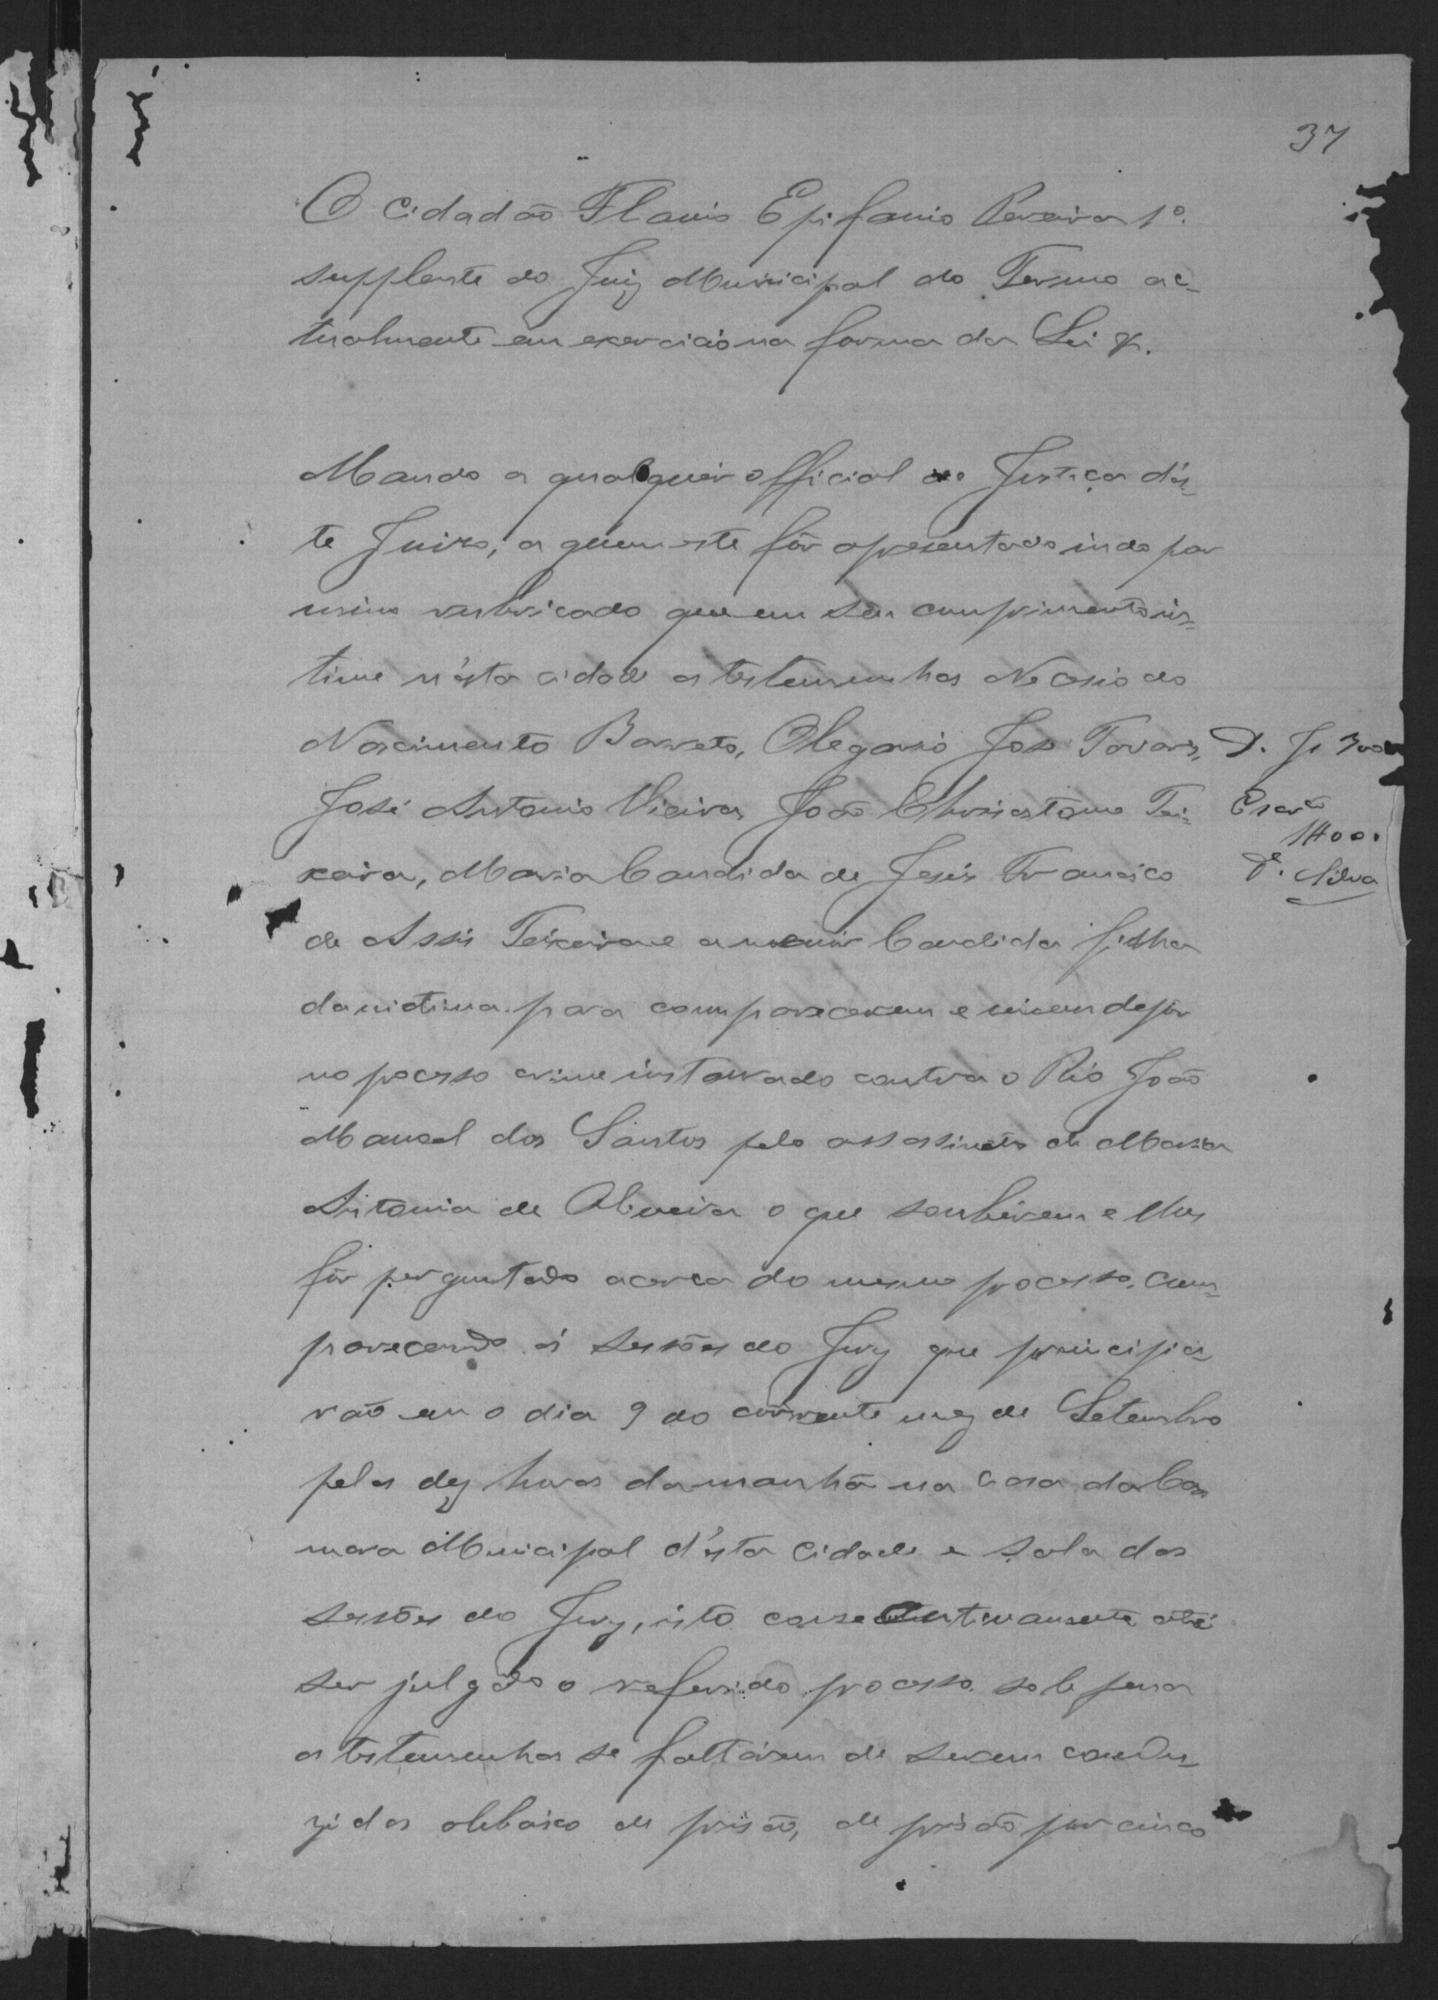 37
O cidadão Flavio Epifanio Pereira 1º.
supplente do Juiz Municipal do Termo ac-
tualmente em exercicio na forma da Lei &.
Mando a qualquer official de Justiça d'es-
te Juizo, a quem este fôr apresentado indo por
mim rubricado que em seu cumprimento in-
time n'esta cidade as testemunhas Necesio do
Nascimento Barreto, Olegario José Tavares,
José Antonio Vieira, João Chrisostomo Tei-
xeira, Maria Candida de Jesus Francisco
de Assis Teixeira e a menor Candida filha
da victima para comparecerem e virem depôr
no pocesso crime instaurado contra o Réo João
Manoel dos Santos pelo assassinato de Maria
Antonia de Oliveira o que souberem e lhes
fôr perguntado acerca do mesmo processo, com-
parecendo ás sessões do Jury que principia-
rão em o dia 9 do corrente mez de Setembro
pelas dez horas da manhã na casa da Ca-
mara Municipal d'esta cidade e sala das
sessões do Jury, isto consecutivamente até
ser julgado o referido processo sob pena
as testemunhas se faltarem de serem condu-
zidas debaixo de prisão, de prisão por cinco
D. J. 300
Escrão
1400.
Silva